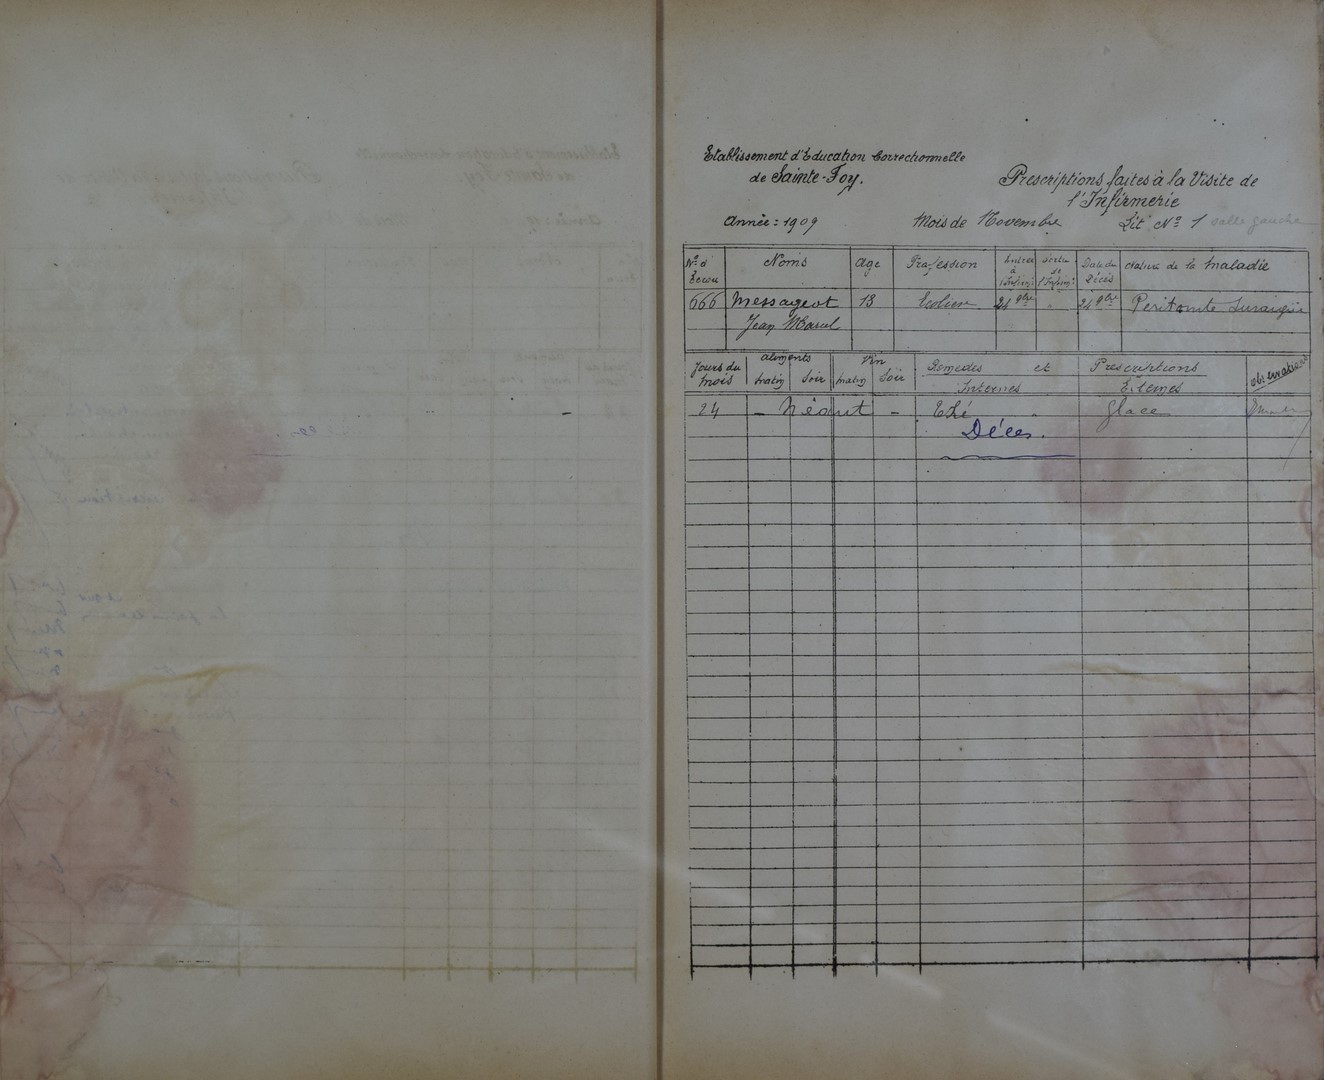 Etablissement d'Education Correctionnelle
de Sainte-Foy.
Prescriptions faites à la Visite de
l'Infirmerie
Année : 1909 Mois de Novembre Lit Nº 1 salle gauche
Nº d'Ecrou Noms Age Profession Entrée à l'Infirm: Sortie de l'Infirm: Date du Décès Nature de la Maladie
666 Messageot 13 Ecolier 24 9bre 24 9bre Peritonite
Jean Marcel
Jours du mois aliments matin Soir Vin matin Soir Remèdes et Prescriptions Internes Externes observations
24 - Néant - Thé glace
Décès.